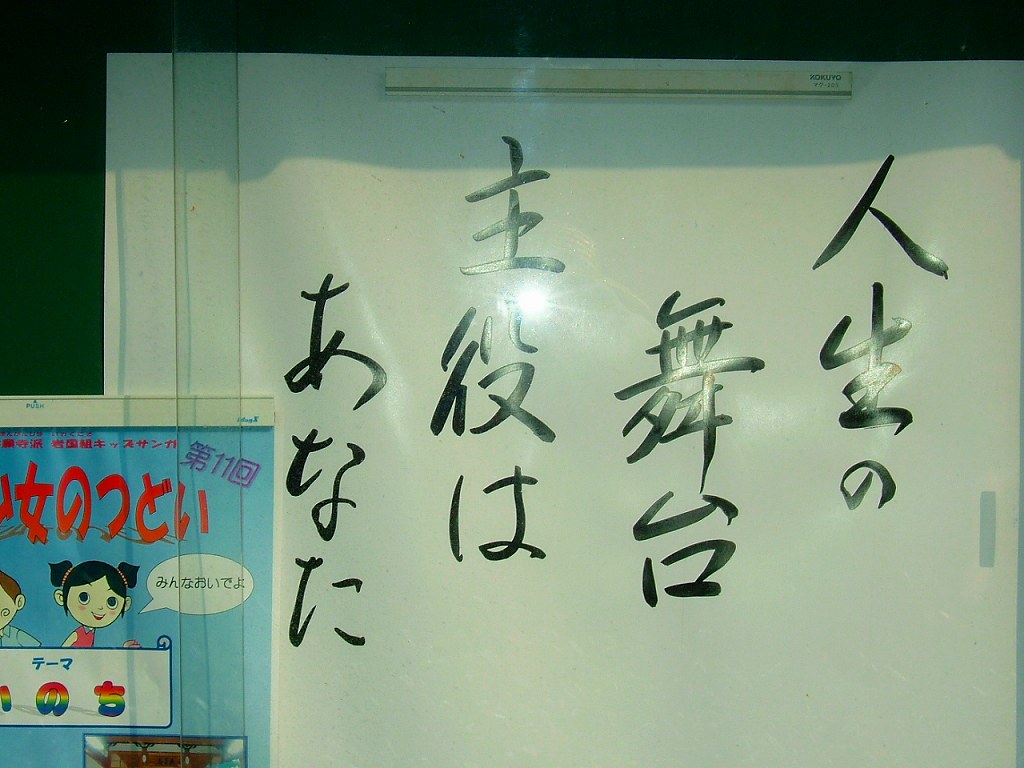 人生の
舞台
主役は
あなた
KOKUYO
PUSH
願寺派 岩国組キッズサンガ
第11回
少女のつどい
みんなおいでよ
テーマ
いのち